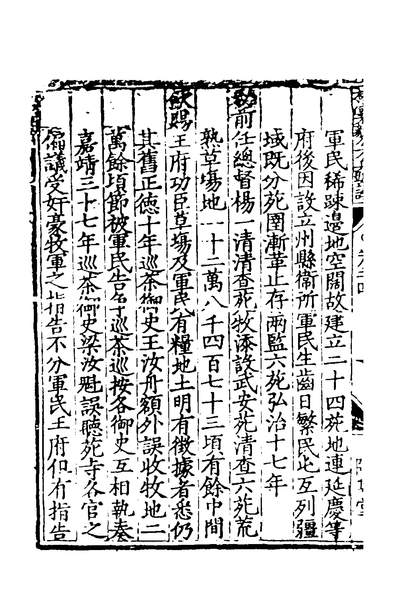 軍民稀踈邊地空闊故建立二十四苑地連延慶等
府後因設立州縣衛所軍民生齒日繁民屯互列疆
域既分苑圉漸革止存兩監六苑弘治十七年
勑前任總督楊 清清查苑牧添設武安苑清查六苑荒
熟草塲地一十二萬八千四百七十三頃有餘中間
欽賜王府功臣草塲及軍民有糧地土明有徵據者悉仍
其舊正德十年巡茶御史王汝舟額外誤收牧地二
萬餘頃節被軍民告爭巡茶巡按各御史互相執奏
嘉靖三十七年巡茶御史梁汝魁誤聽苑寺各官之
偏議受奸豪牧軍之指告不分軍民王府但有指告